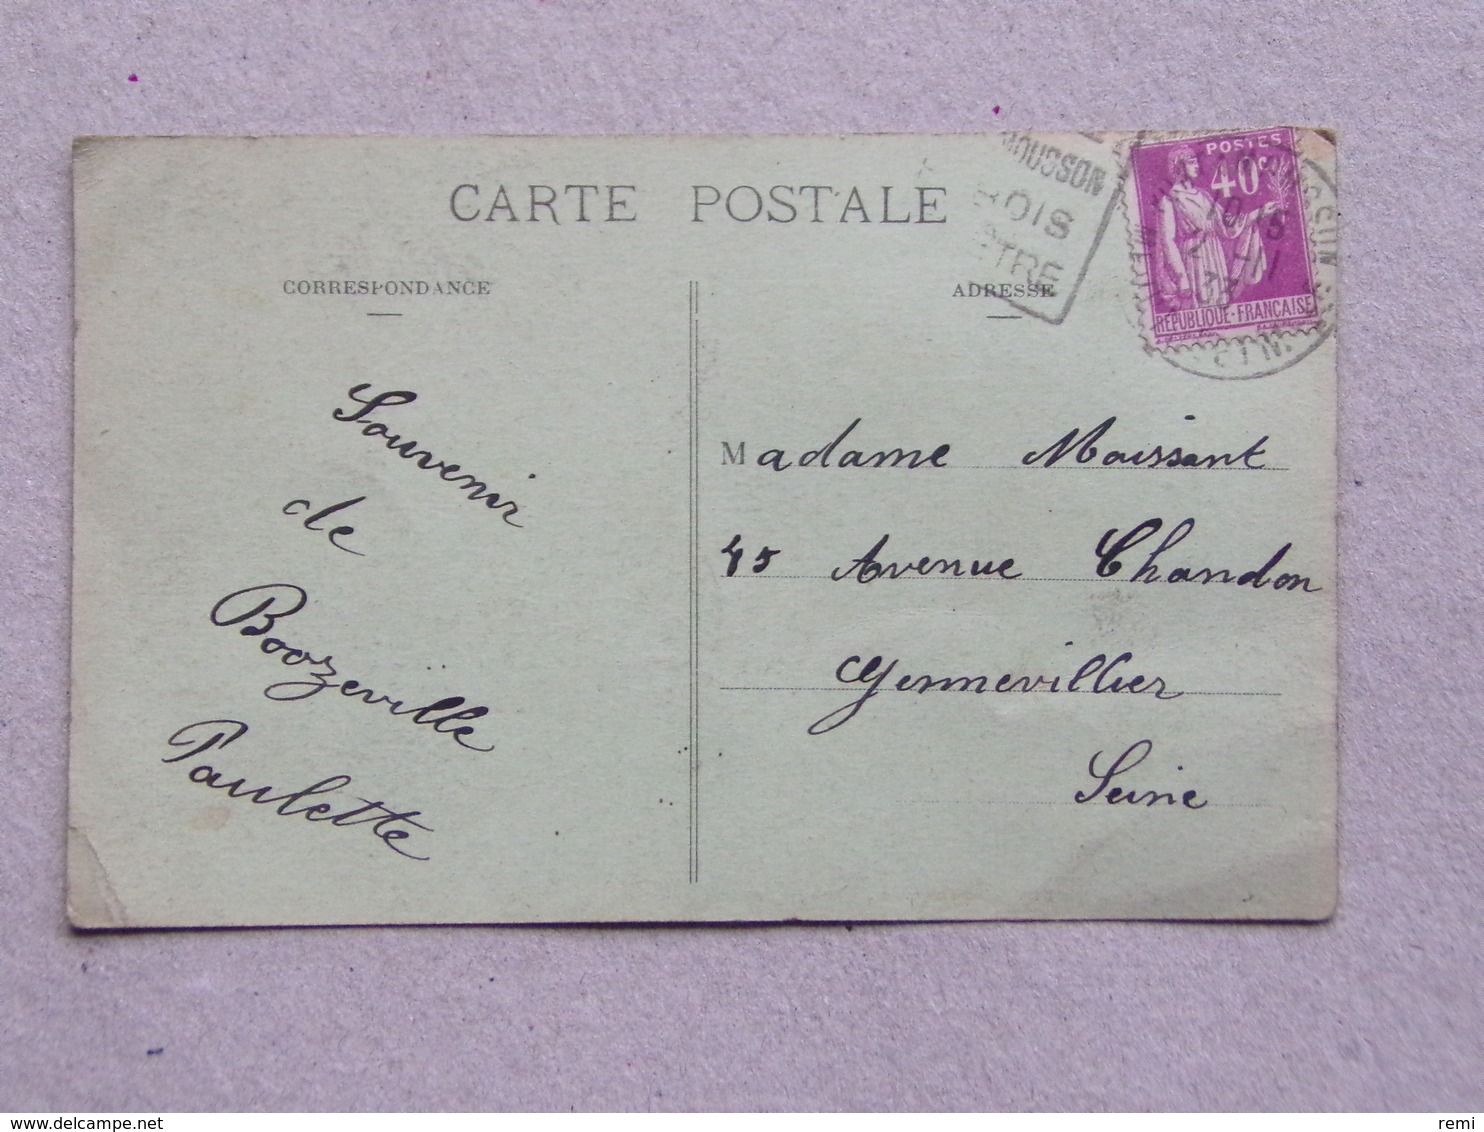 CARTE POSTALE
CORRESPONDANCE
ADRESSE
MOUSSON
OIS
TRE
POSTES
40c
REPUBLIQUE·FRANCAISE
Souvenir
de
Boozeville
Paulette
Madame Moissant
45 Avenue Chandon
Gennevillier
Seine
remi